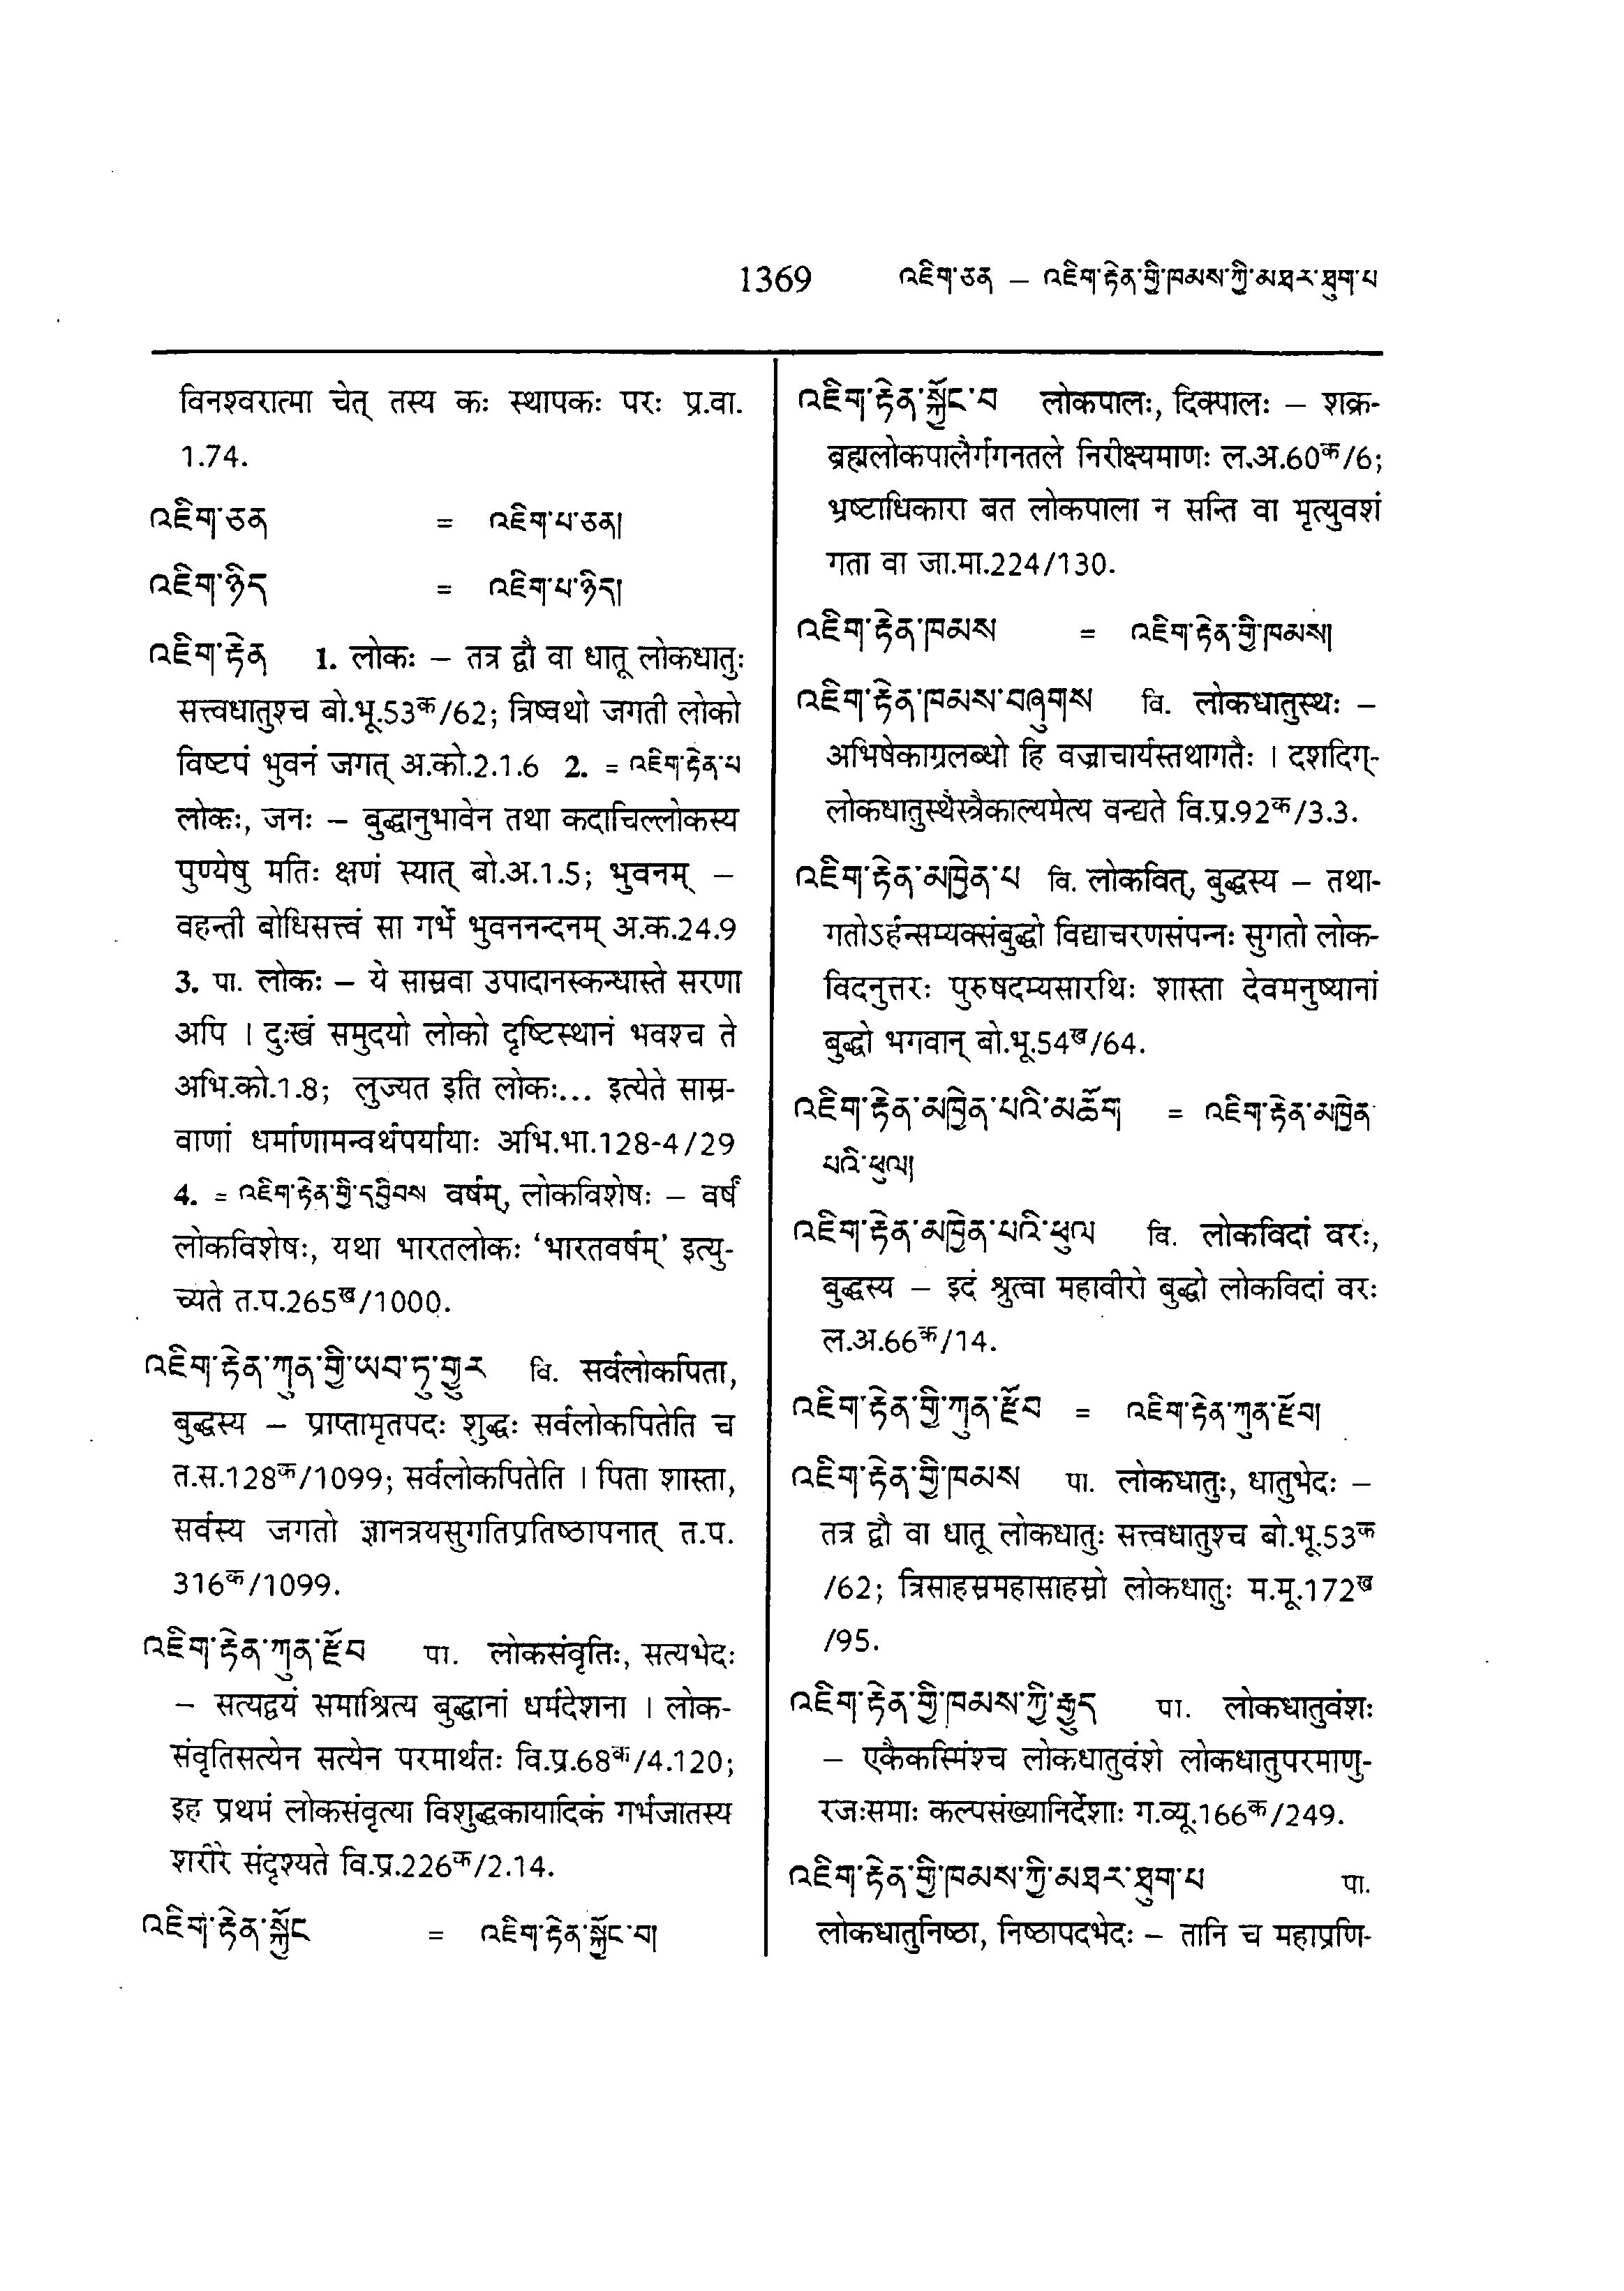 1369 འཇིག་ཅན – འཇིག་རྟེན་གྱི་ཁམས་ཀྱི་མཐར་ཐུག་པ
विनश्वरात्मा चेत् तस्य कः स्थापकः परः प्र.वा.
1.74.
འཇིག་ཅན = འཇིག་པ་ཅན།
འཇིག་ཉིད = འཇིག་པ་ཉིད།
འཇིག་རྟེན 1. लोकः – तत्र द्वौ वा धातू लोकधातुः
सत्त्वधातुश्च बो.भू.53क/62; त्रिष्वथो जगती लोको
विष्टपं भुवनं जगत् अ.को.2.1.6 2. = འཇིག་རྟེན་པ
लोकः, जनः – बुद्धानुभावेन तथा कदाचिल्लोकस्य
पुण्येषु मतिः क्षणं स्यात् बो.अ.1.5; भुवनम् –
वहन्ती बोधिसत्त्वं सा गर्भे भुवननन्दनम् अ.क.24.9
3. पा. लोकः – ये सास्रवा उपादानस्कन्धास्ते सरणा
अपि । दुःखं समुदयो लोको दृष्टिस्थानं भवश्च ते
अभि.को.1.8; लुज्यत इति लोकः... इत्येते सास्र-
वाणां धर्माणामन्वर्थपर्यायाः अभि.भा.128-4/29
4. = འཇིག་རྟེན་གྱི་དབྱིབས वर्षम्, लोकविशेषः – वर्षं
लोकविशेषः, यथा भारतलोकः ‘भारतवर्षम्’ इत्यु-
च्यते त.प.265ख/1000.
འཇིག་རྟེན་ཀུན་གྱི་ཡབ་ཏུ་གྱུར वि. सर्वलोकपिता,
बुद्धस्य – प्राप्तामृतपदः शुद्धः सर्वलोकपितेति च
त.स.128क/1099; सर्वलोकपितेति । पिता शास्ता,
सर्वस्य जगतो ज्ञानत्रयसुगतिप्रतिष्ठापनात् त.प.
316क/1099.
འཇིག་རྟེན་ཀུན་རྫོབ पा. लोकसंवृतिः, सत्यभेदः
– सत्यद्वयं समाश्रित्य बुद्धानां धर्मदेशना । लोक-
संवृतिसत्येन सत्येन परमार्थतः वि.प्र.68क/4.120;
इह प्रथमं लोकसंवृत्या विशुद्धकायादिकं गर्भजातस्य
शरीरे संदृश्यते वि.प्र.226क/2.14.
འཇིག་རྟེན་སྐྱོང = འཇིག་རྟེན་སྐྱོང་བ།
འཇིག་རྟེན་སྐྱོང་བ लोकपालः, दिक्पालः – शक्र-
ब्रह्मलोकपालैर्गगनतले निरीक्ष्यमाणः ल.अ.60क/6;
भ्रष्टाधिकारा बत लोकपाला न सन्ति वा मृत्युवशं
गता वा जा.मा.224/130.
འཇིག་རྟེན་ཁམས = འཇིག་རྟེན་གྱི་ཁམས།
འཇིག་རྟེན་ཁམས་བཞུགས वि. लोकधातुस्थः –
अभिषेकाग्रलब्धो हि वज्राचार्यस्तथागतैः । दशदिग्-
लोकधातुस्थैस्त्रैकाल्यमेत्य वन्द्यते वि.प्र.92क/3.3.
འཇིག་རྟེན་མཁྱེན་པ वि. लोकवित्, बुद्धस्य – तथा-
गतोऽर्हन्सम्यक्संबुद्धो विद्याचरणसंपन्नः सुगतो लोक-
विदनुत्तरः पुरुषदम्यसारथिः शास्ता देवमनुष्यानां
बुद्धो भगवान् बो.भू.54ख/64.
འཇིག་རྟེན་མཁྱེན་པའི་མཆོག = འཇིག་རྟེན་མཁྱེན་
པའི་ཕུལ།
འཇིག་རྟེན་མཁྱེན་པའི་ཕུལ वि. लोकविदां वरः,
बुद्धस्य – इदं श्रुत्वा महावीरो बुद्धो लोकविदां वरः
ल.अ.66क/14.
འཇིག་རྟེན་གྱི་ཀུན་རྫོབ = འཇིག་རྟེན་ཀུན་རྫོབ།
འཇིག་རྟེན་གྱི་ཁམས पा. लोकधातुः, धातुभेदः –
तत्र द्वौ वा धातू लोकधातुः सत्त्वधातुश्च बो.भू.53क
/62; त्रिसाहस्रमहासाहस्रो लोकधातुः म.मू.172ख
/95.
འཇིག་རྟེན་གྱི་ཁམས་ཀྱི་རྒྱུད पा. लोकधातुवंशः
– एकैकस्मिंश्च लोकधातुवंशे लोकधातुपरमाणु-
रजःसमाः कल्पसंख्यानिर्देशाः ग.व्यू.166क/249.
འཇིག་རྟེན་གྱི་ཁམས་ཀྱི་མཐར་ཐུག་པ पा.
लोकधातुनिष्ठा, निष्ठापदभेदः – तानि च महाप्रणि-